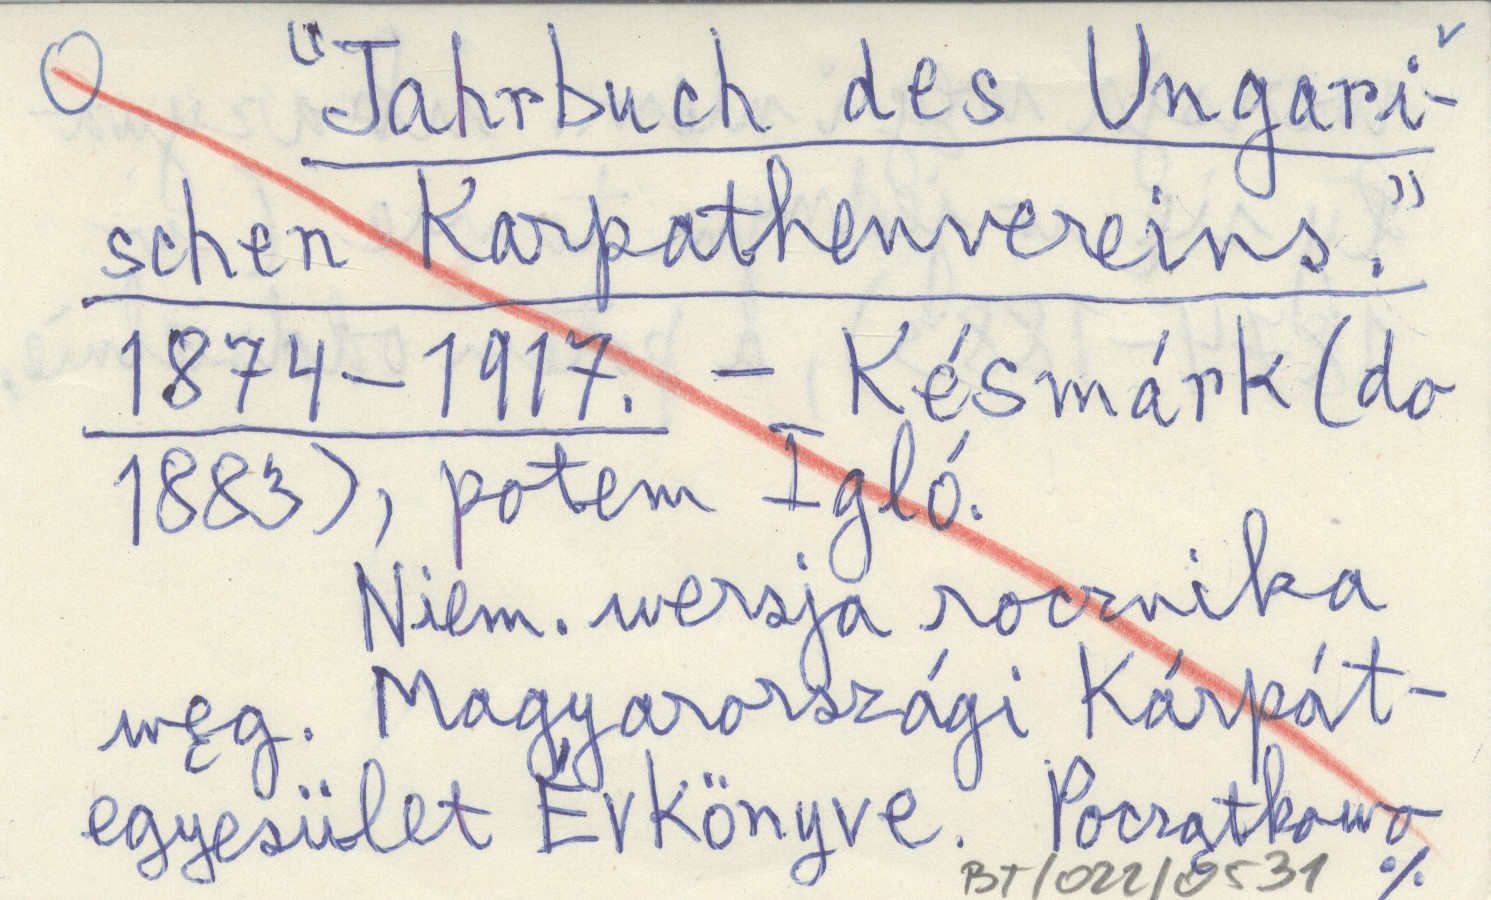 "Jahrbuch des Ungari-
schen Karpathenvereins."
1874-1917. - Késmárk (do
1883), potem Igló.
Niem. wersja rocznika
węg. Magyarországi Kárpát-
egyesület Évkönyve. Początkowo
BT/022/0531 %